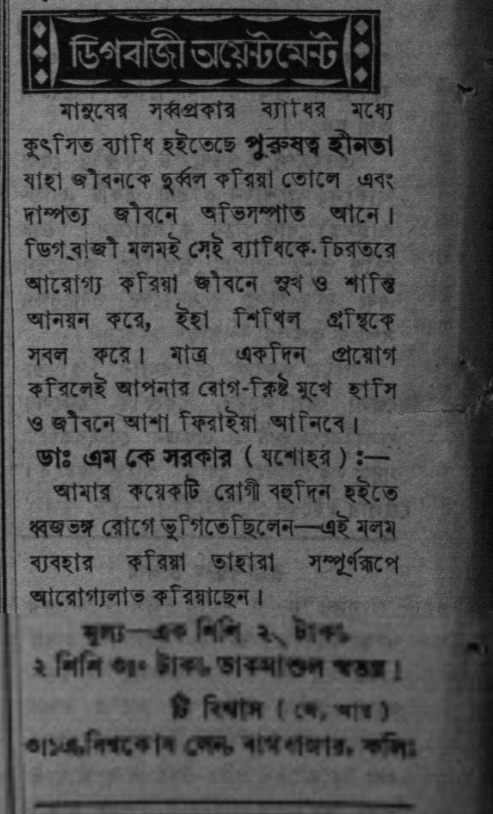 ডিগবাজী অয়েন্টমেন্ট
মানুষের সর্ব্বপ্রকার ব্যাধির মধ্যে
কুৎসিত ব্যাধি হইতেছে পুরুষত্ব হীনতা
যাহা জীবনকে দুর্ব্বল করিয়া তোলে এবং
দাম্পত্য জীবনে অভিসম্পাত আনে।
ডিগবাজী মলমই সেই ব্যাধিকে চিরতরে
আরোগ্য করিয়া জীবনে সুখ ও শান্তি
আনয়ন করে, ইহা শিথিল গ্রন্থিকে
সবল করে। মাত্র একদিন প্রয়োগ
করিলেই আপনার রোগ-ক্লিষ্ট মুখে হাসি
ও জীবনে আশা ফিরাইয়া আনিবে।
ডাঃ এম কে সরকার (যশোহর) :—
আমার কয়েকটি রোগী বহুদিন হইতে
ধ্বজভঙ্গ রোগে ভুগিতেছিলেন—এই মলম
ব্যবহার করিয়া তাহারা সম্পূর্ণরূপে
আরোগ্যলাভ করিয়াছেন।
মূল্য—এক শিশি ২৲ টাকা,
২ শিশি টাকা, ডাকমাশুল স্বতন্ত্র।
টি বিশ্বাস
লেন, বাগবাজার, কলিঃ